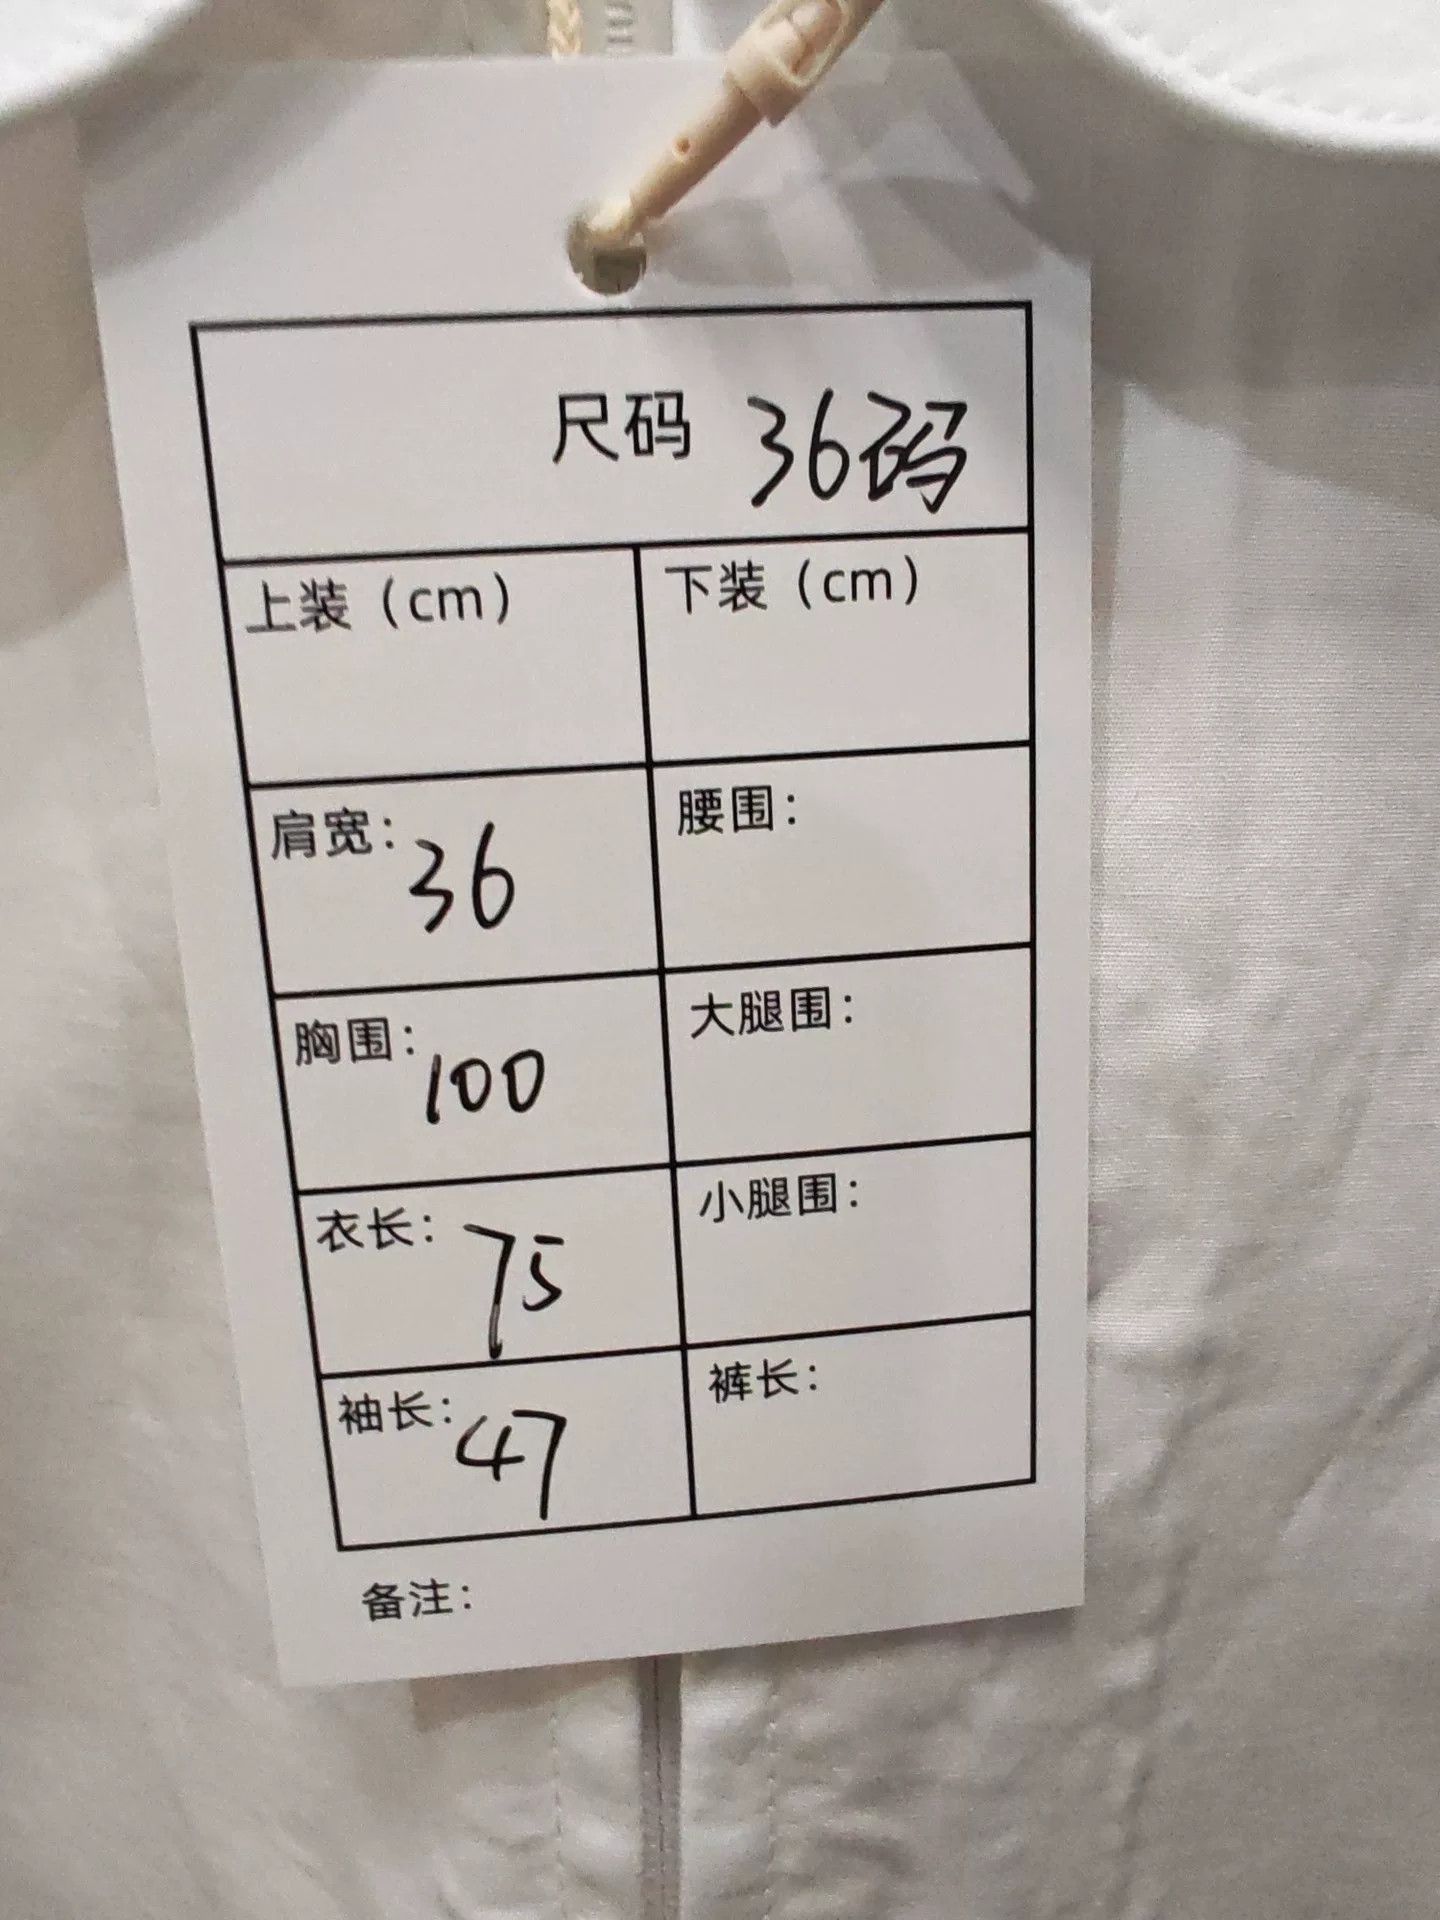 尺码 36码
上装（cm） 下装（cm）
肩宽：36 腰围：
胸围：100 大腿围：
衣长：75 小腿围：
袖长：47 裤长：
备注：